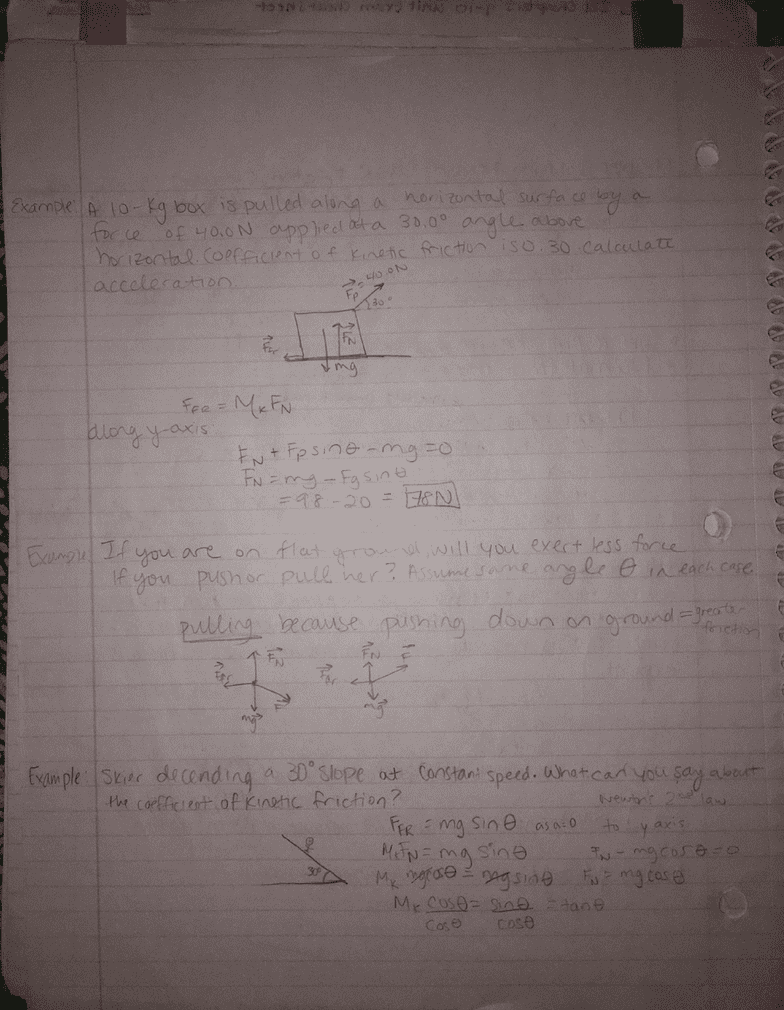 Example: A 10-Kg box is pulled along a horizontal surface by a
force of 40.0N applied at a 30.0° angle above
horizontal coefficient of kinetic friction is 0.30 calculate
acceleration
F⃗p = 40.0N
30°
F⃗N
F⃗Fr
mg
FFR = MkFN
along y-axis
FN + Fp sinθ - mg = 0
FN = mg - Fg sinθ
= 98 - 20 = 78N
Example: If you are on flat ground, will you exert less force
if you push or pull her? Assume same angle θ in each case
pulling because pushing down on ground = greater
friction
F⃗N
F⃗Fr
F⃗
mg⃗
F⃗N
F⃗
F⃗fr
mg⃗
Example: Skier decending a 30° slope at constant speed. What can you say about
the coefficient of kinetic friction?
Newton's 2nd law
FFR = mg sinθ as a=0 to y axis
MkFN = mg sinθ FN - mg cosθ = 0
Mk mg cosθ = mg sinθ FN = mg cosθ
30°
Mk cosθ = sinθ = tanθ
cosθ cosθ